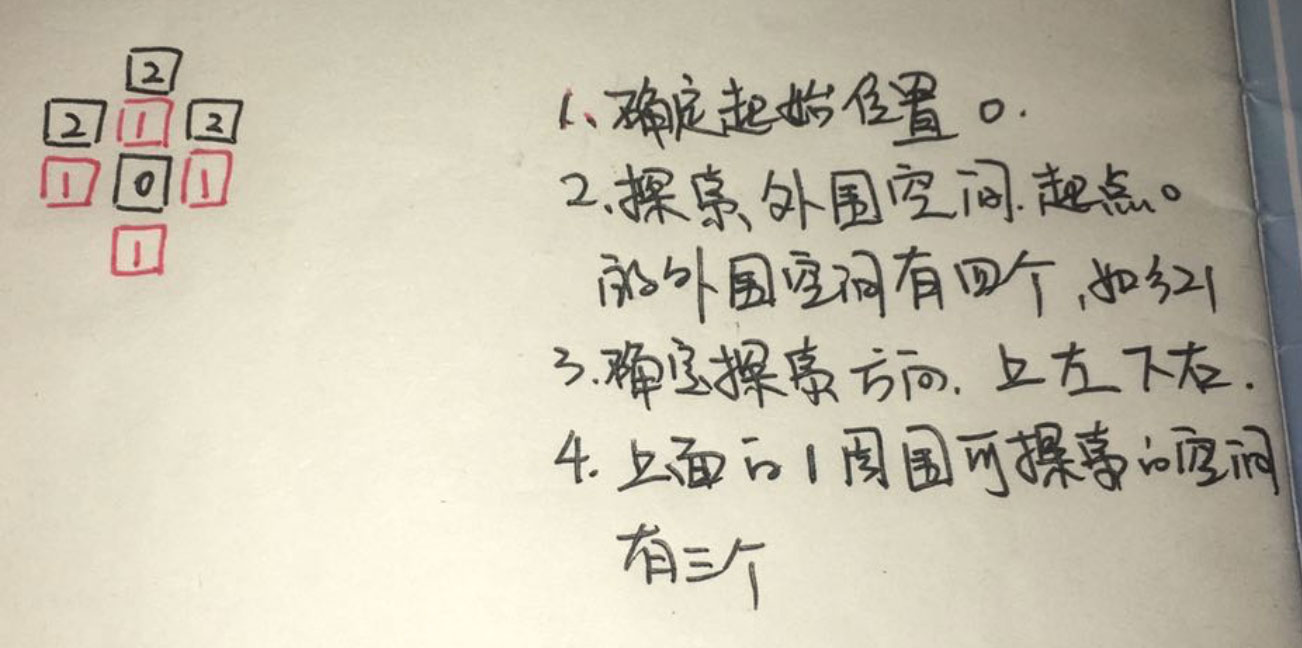 2
2 1 2
1 0 1
1
1、确定起始位置 0.
2、探索外围空间.起点0
的外围空间有四个,如红1
3.确定探索方向. 上左下右.
4. 上面的1周围可探索的空间
有三个